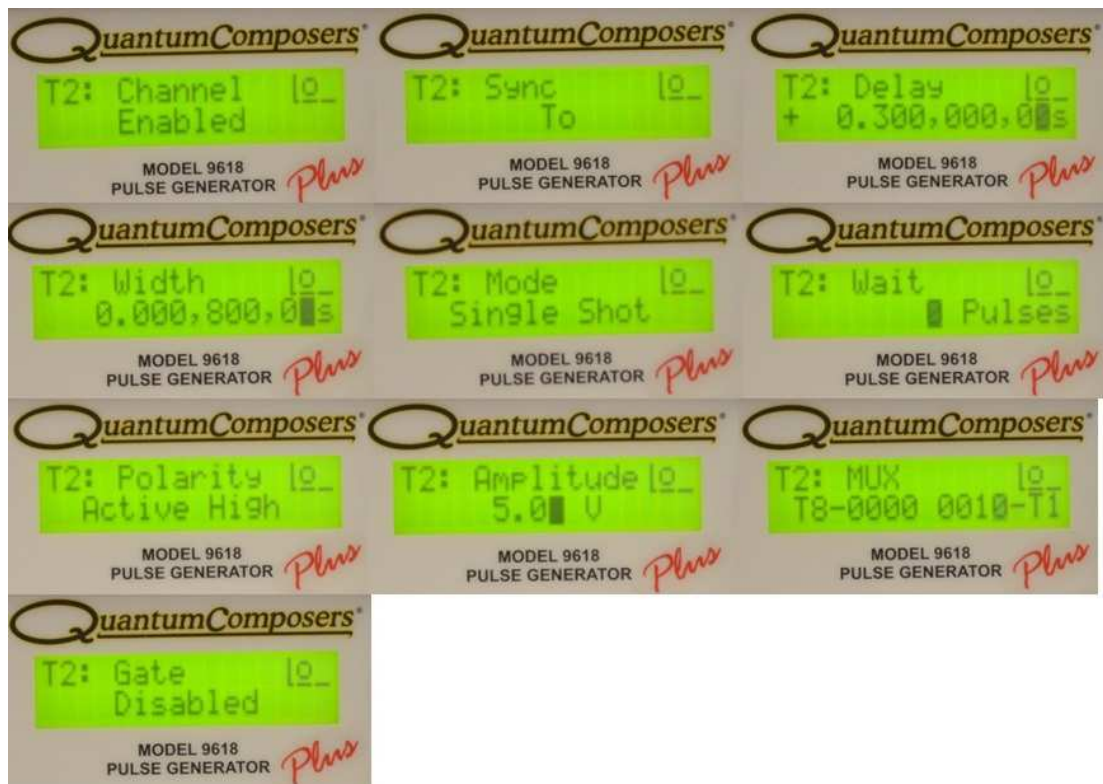 QuantumComposers
T2: Channel
Enabled
MODEL 9618
PULSE GENERATOR Plus
QuantumComposers
T2: Sync
To
MODEL 9618
PULSE GENERATOR Plus
QuantumComposers
T2: Delay
+ 0.300,000,0 s
MODEL 9618
PULSE GENERATOR Plus
QuantumComposers
T2: Width
0.000,800,0 s
MODEL 9618
PULSE GENERATOR Plus
QuantumComposers
T2: Mode
Single Shot
MODEL 9618
PULSE GENERATOR Plus
QuantumComposers
T2: Wait
0 Pulses
MODEL 9618
PULSE GENERATOR Plus
QuantumComposers
T2: Polarity
Active High
MODEL 9618
PULSE GENERATOR Plus
QuantumComposers
T2: Amplitude
5.0 V
MODEL 9618
PULSE GENERATOR Plus
QuantumComposers
T2: MUX
T8-0000 0010-T1
MODEL 9618
PULSE GENERATOR Plus
QuantumComposers
T2: Gate
Disabled
MODEL 9618
PULSE GENERATOR Plus